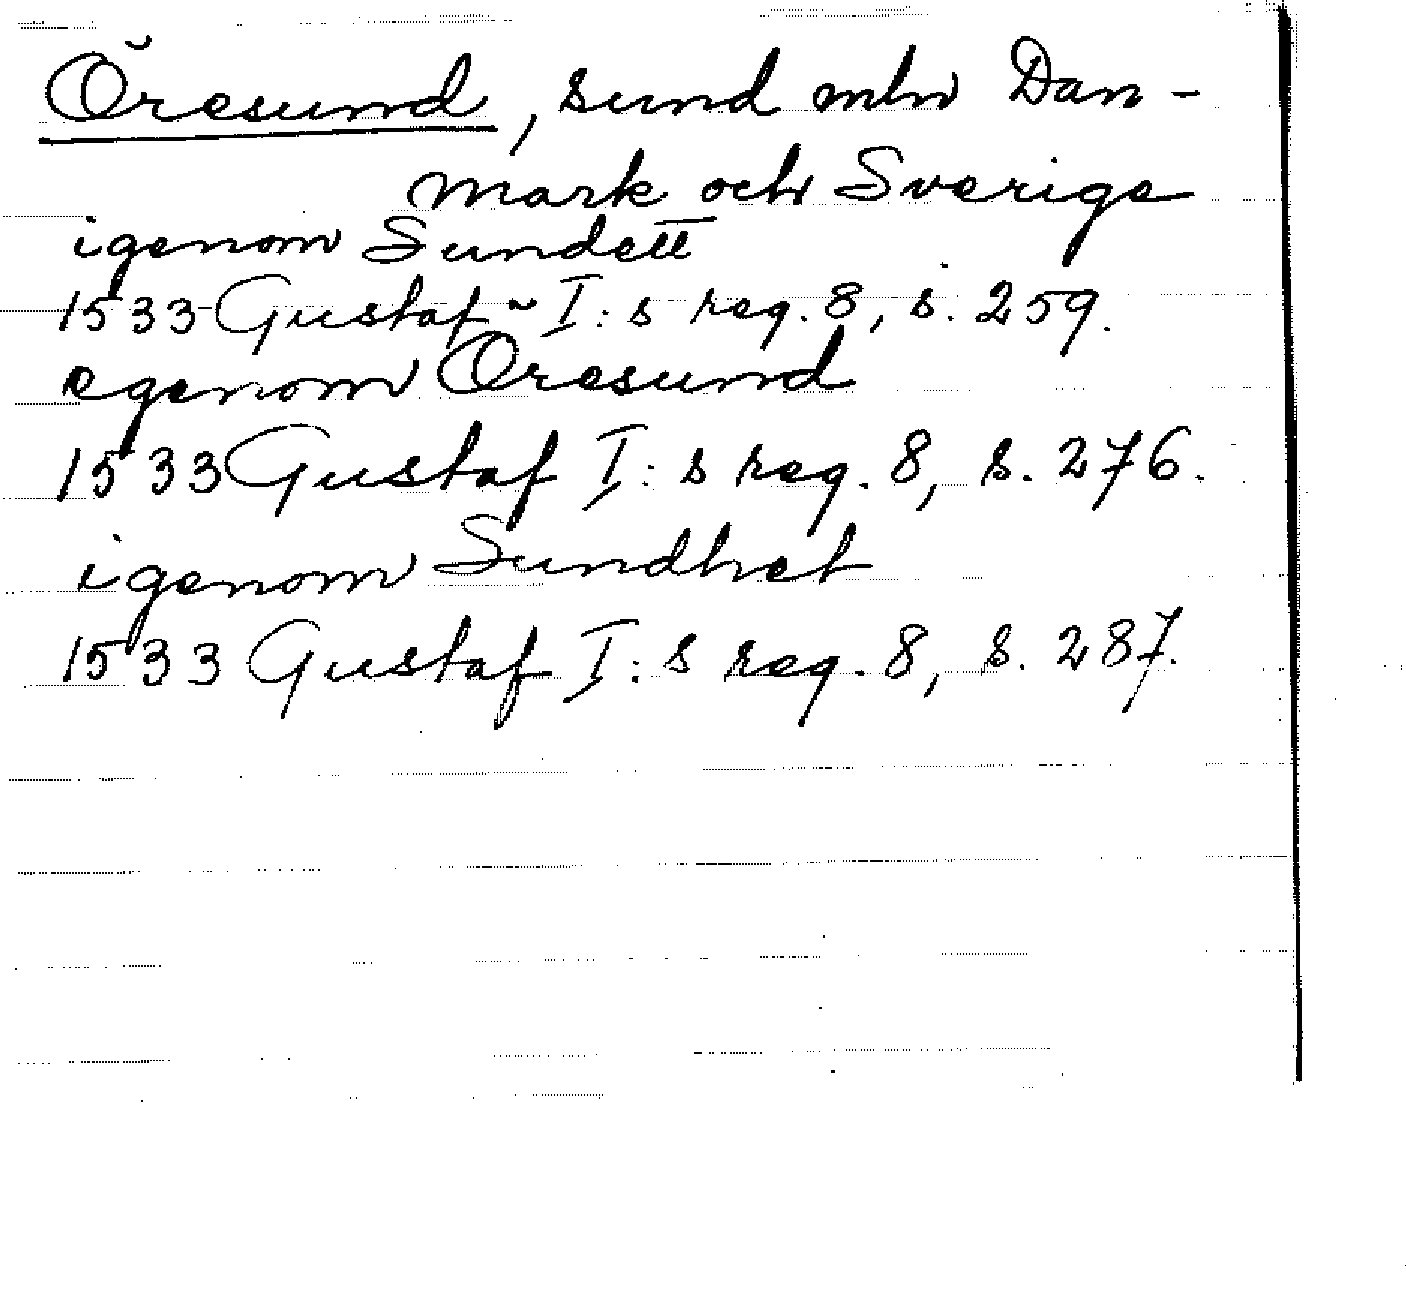 Öresund, sund mln Dan-
mark och Sverige
igenom Sundett
1533 Gustaf I:s reg. 8, s. 259.
egenom Oresund
1533 Gustaf I:s reg. 8, s. 276.
igenom Sundhet
1533 Gustaf I:s reg. 8, s. 287.